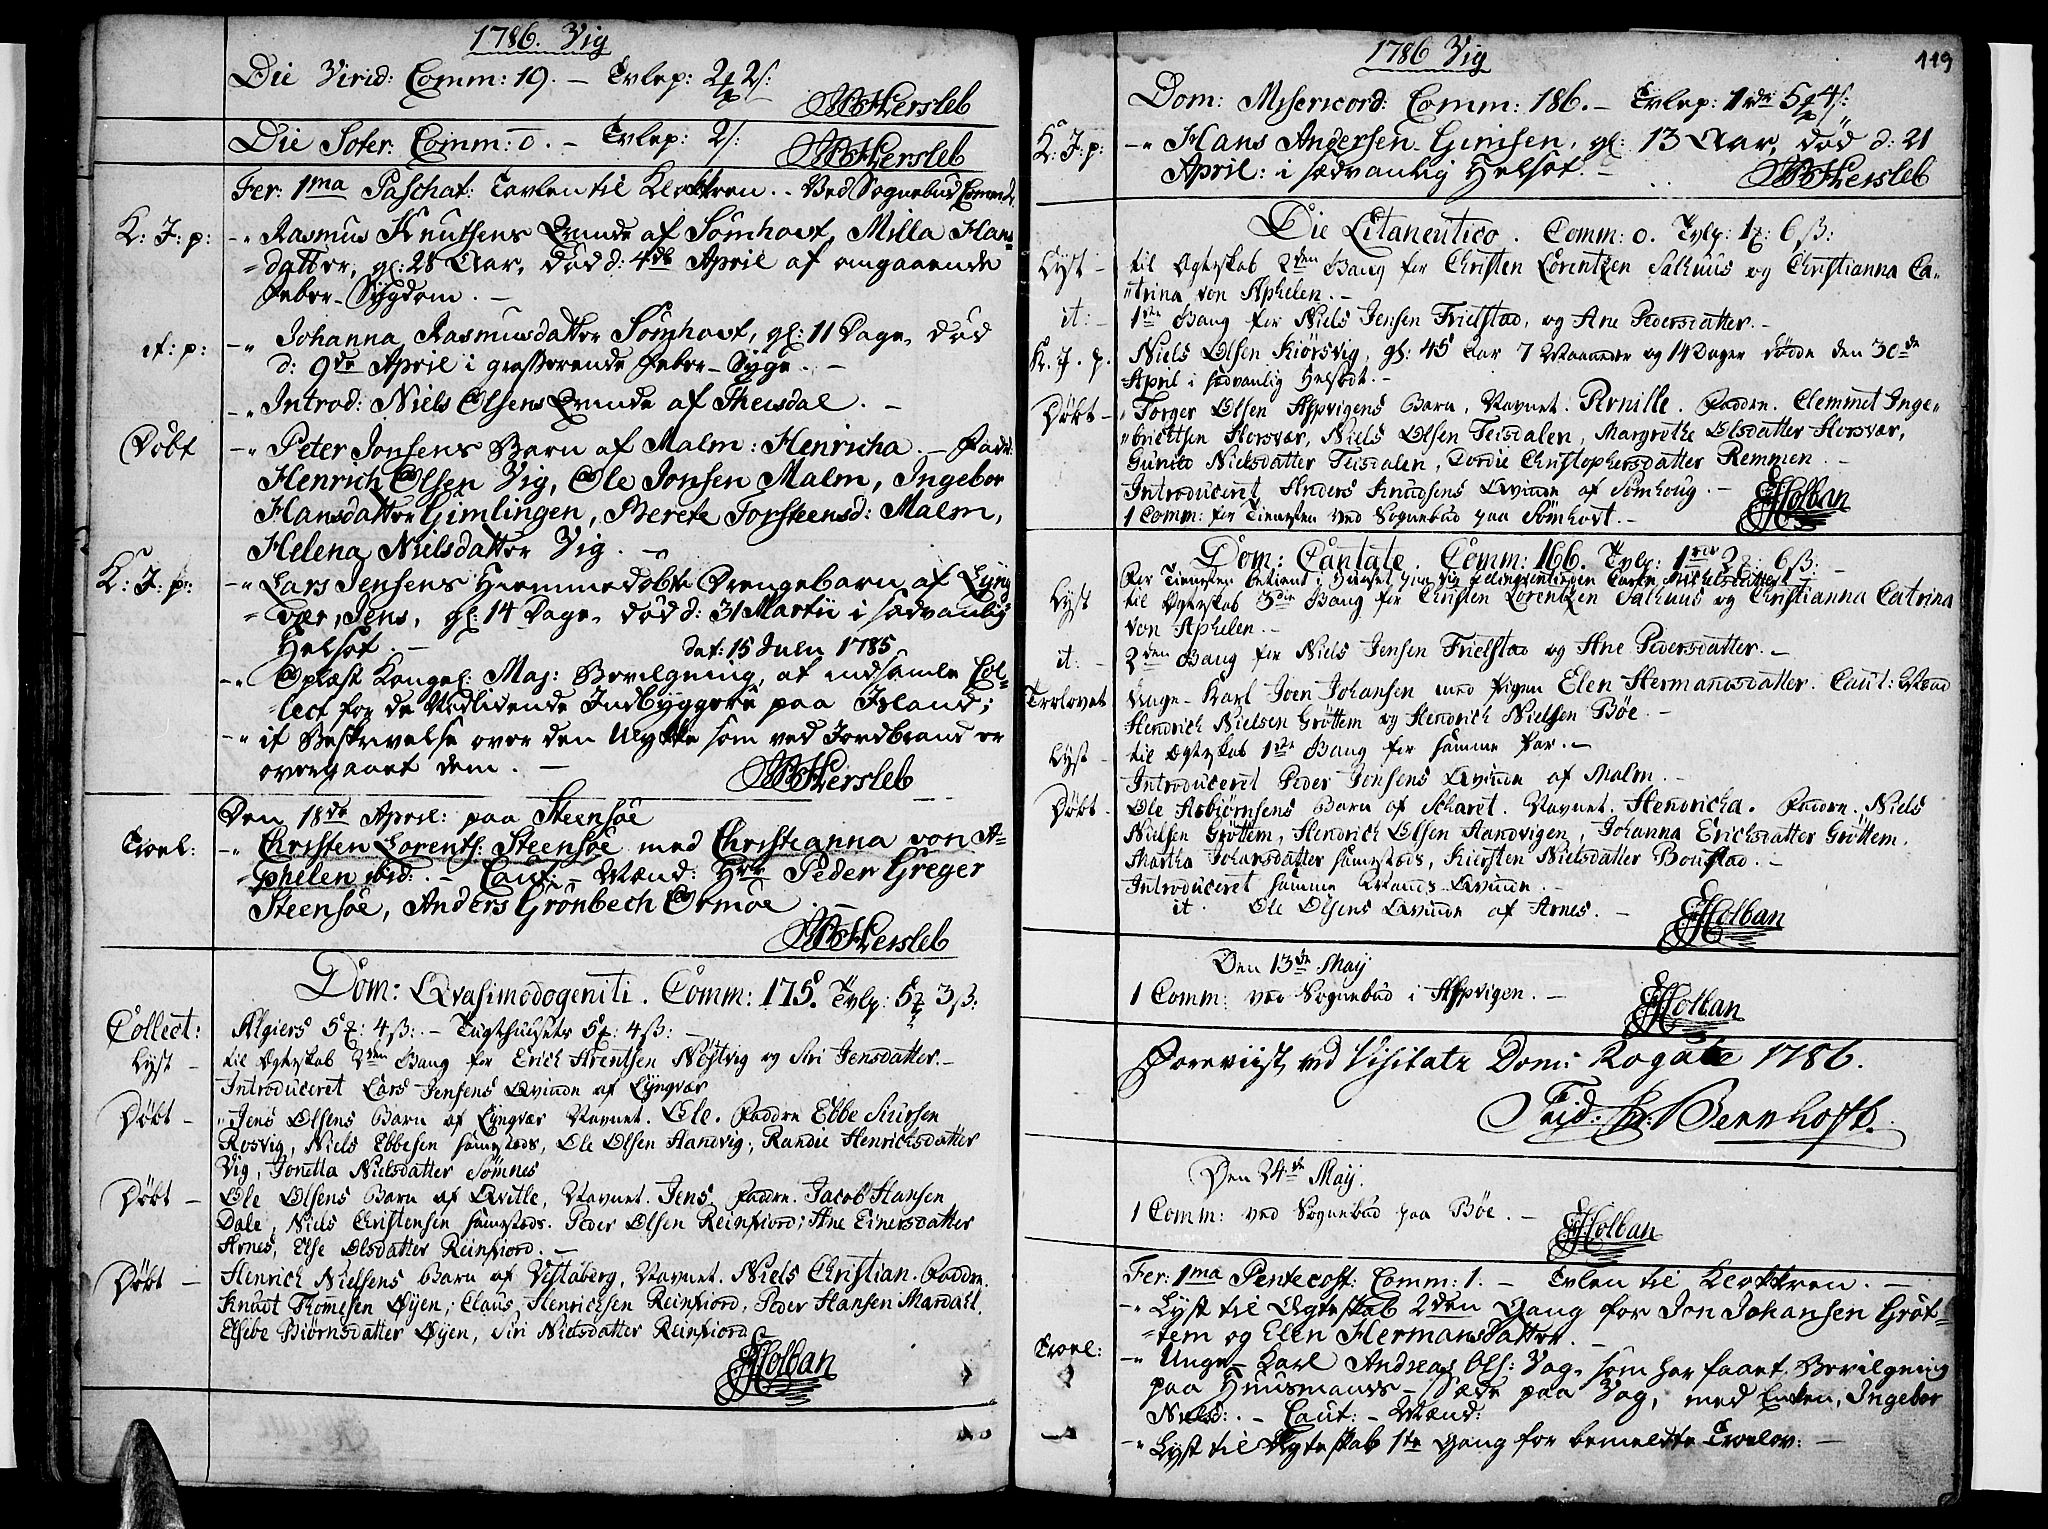 1786. Vig
Die Virid: Comm: 19. — Tvlep: 2 2 s:
Hersleb
Die Soter: Comm: 0. — Tvlep: 2 s:
Hersleb
Fer: 1ma Paschat: Tavlen til Klokkeren. — Ved Sognebud Comm:
K: J: p: —" Rasmus Knutsens Qvinde af Sömhovt, Milla Hans=
=datter, gl: 28 Aar, død d: 4de April af omgaaende
Feber-Sygdom. —
it: p: —" Johanna Rasmusdatter Sömhovt, gl: 11 Dage, död
d: 9de April i grasserende Feber-Syge. —
—" Introd: Niels Olsens Qvinde af Theisdal. —
Döbt —" Peter Jonsens Barn af Malm: Henricha. — Fadd:
Henrich Olsen Vig, Ole Jonsen Malm, Ingebor
Hansdatter Gimlingen, Berete Torsteensd: Malm,
Helena Nielsdatter Vig. —
K: J: p: —" Lars Jensens Hiemmedöbte Drengebarn af Lyng
=vær, Jens, gl: 14 Dage, död d: 31 Martii i sædvanlig
Helsot. — dat: 15 Julii 1785
—" Oplæst Kongel: Maj: Bevilgning, at indsamle Col=
=lect for de Nødlidende Indbyggere paa Island;
—" it Beskrivelse over den Ulykke som ved Jordbrand er
overgaaet dem. —
Hersleb
Den 18de April: paa Steensöe
Troel: —" Christen Lorents: Steensöe med Christianna von A=
=phelen ibid: — Caut: — Mænd: Hr Peder Greger
Steensöe, Anders Grönbech Ormöe. —
Hersleb
Dom: Qvasimodogeniti. Comm: 175. Tvlp: 5 3 ß:
Collect: Algiers 5 : 4 ß: — Tugthusets 5 : 4 ß: —
Lyst — til Ægteskab 2den Gang for Erich Arentsen Nöstvig og Siri Jensdatter. —
Introduceret Lars Jensens Qvinde af Lyngvær
Döbt — " Jens Olsens Barn af Lyngvær Navnet. Ole. Faddre Ebbe Siursen
Rosvig, Niels Ebbesen samestæds, Ole Olsen Aandvig, Randie Henrichsdatter
Vig, Jonetta Nielsdatter Sömnes
Döbt — Ole Olsens Barn af Qvitle, Navnet. Jens. Faddre. Jacob Hansen
Dale, Niels Christensen samestæds. Peder Olsen Reinfiord, Ane Einersdatter
Arnes, Else Olsdatter Reinfiord. —
Döbt — Henrich Nielsens Barn af Vistaberg, Navnet. Niels Christian. Faddre.
Knudt Thomesen Øyen, Claus Henrichsen Reinfiord, Peder Hansen Mardahl,
Elsebe Biörnsdatter Øyen, Siri Nielsdatter Reinfiord.
Holban
1786 Vig
119
Dom: Misericord: Comm: 186. — Tvlep: 1 rd 5 4 s:
K: J: p: —" Hans Andersen Gimsen, gl: 13 Aar, död d: 21
April: i sædvanlig Helsot. —
Hersleb
Die Litaneutico. Comm: 0. Tvlp: 1 : 6 ß:
Lyst — til Ægteskab 2den Gang for Christen Lorentzen Salhuus og Christianna Ca=
"trina von Aphelen. —
it: — 1ste Gang for Niels Jensen Frielstad, og Ane Pedersdatter. —
K. J. p. Niels Olsen Kiörsvig, gl: 45 Aar 7 Maaneder og 14 Dager Dödde den 30de
April i sædvanlig Helsodt. —
Döbt — " Torger Olsen Aspvigens Barn, Navnet. Pernille. Faddre. Clemmet Inge=
"brictsen Horsvær, Niels Olsen Teisdalen, Margrethe Olsdatter Horsvær,
Gunild Nielsdatter Teisdalen, Dordie Christophersdatter Remmen. —
Introduceret Anders Knudsens Qvinde af Sömhoug. —
1 Comm: for Tienesten ved Sognebud paa Sömhovt. —
Holban
Dom: Cantate. Comm: 166. Tvlp: 1rdr 2 : 6 ß: —
For Tienesten betient i Huuset paa Vig Michelsdatter
Lyst til Ægteskab 3die Gang for Christen Lorentzen Salhuus og Christianna Catrina
von Aphelen. —
it: — 2den Gang for Niels Jensen Frielstad og Ane Pedersdatter. —
Trolovet Unge-Karl Joen Johansen med Pigen Elen Hermansdatter. Caut: Mænd
Hendrich Nielsen Gröttem og Hendrich Nielsen Böe. —
Lyst — til Ægteskab 1ste Gang for samme Par. —
Introduceret Peder Jonsens Qvinde af Malm. —
Döbt — Ole Asbjörnsens Barn af Scharet. Navnet. Hendricha. Faddre. Niels
Nielsen Gröttem, Hendrich Olsen Aandvigen, Johanna Erichsdatter Gröttem.
Martha Johansdatter samesteds, Kiersten Nielsdatter Boustad. —
Introduceret samme Mands Qvinde. —
it. Ole Olsens Qvinde af Arnes. —
Holban
Den 13de May
1 Comm: ved Sognebud i Aspvigen. —
Holban
Foreviist ved Visitatz Dom: Rogate 1786.
Frid: Chr: Bernhoft.
Den 24de May.
1 Comm: ved Sognebud paa Böe. —
Holban
Fer: 1ma Pentecost: Comm: 1. — Tvlen til Klokkeren. —
—" Lyst til Ægteskab 2den Gang for Jon Johansen Gröt=
=tem og Elen Hermansdatter. —
Troel: —" Unge-Karl Andreas Ols: Vag, som har faaet Bevilgning
paa Huusmands-Sæde paa Vag, med Enken, Ingebor
Nielsd: — Caut: — Mænd:
—" Lyst til Ægteskab 1te Gang for bemeldte Troelov: —